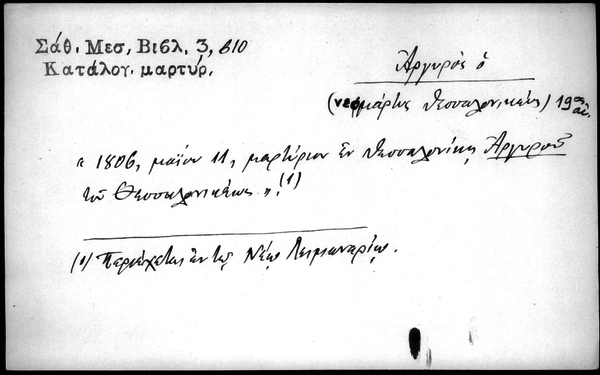 Σάθ. Μεσ, Βιβλ, 3, 610
Κατάλογ. μαρτύρ,
Ἀργυρὸς ὁ
(νεομάρτυς Θεσσαλονικεύς) 19ος αἰ.
« 1806, μαΐου 11, μαρτύριον ἐν Θεσσαλονίκῃ Ἀργυροῦ
τοῦ Θεσσαλονικέως ».(1)
(1) Περιέχεται ἐν τῷ Νέῳ Λειμωναρίῳ.